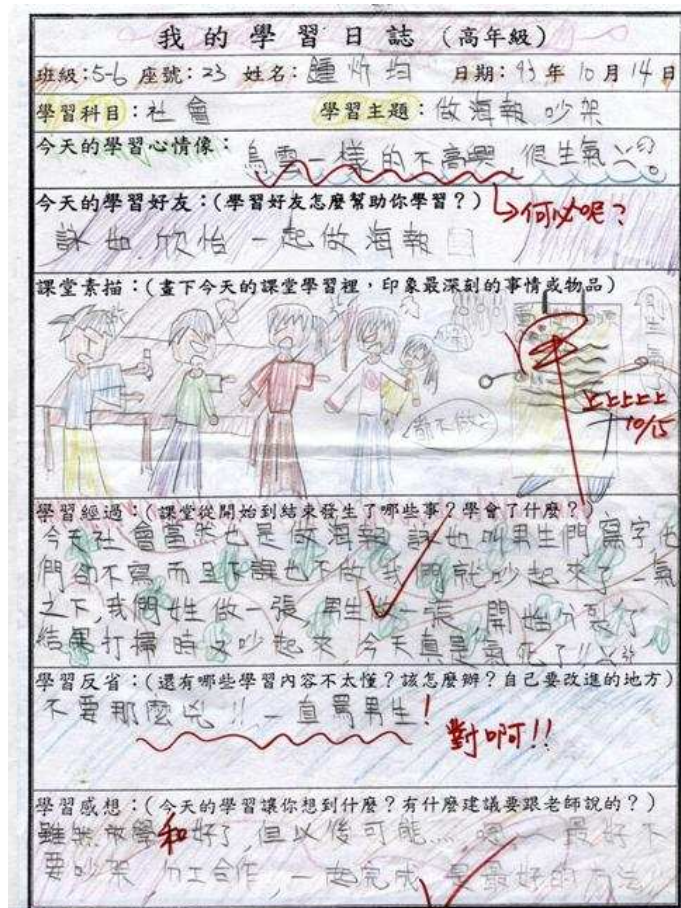 我的學習日誌(高年級)
班級:5-6 座號:23 姓名:鍾 均 日期:93年10月14日
學習科目:社會 學習主題:做海報 吵架
今天的學習心情像:烏雲一樣的不高興,很生氣
今天的學習好友:(學習好友怎麼幫助你學習?)
何必呢?
詠如 欣怡 一起做海報
課堂素描:(畫下今天的課堂學習裡,印象最深刻的事情或物品)
都不做
上上上上上
10/15
學習經過:(課堂從開始到結束發生了哪些事?學會了什麼?)
今天社會當然也是做海報 詠如叫男生們寫字,他
們卻不寫而且下課也不做,我們就吵起來了,一氣
之下,我們 做一張,男生做一張,開始分裂了,
結果打掃時又吵起來,今天真是氣死了!!
學習反省:(還有哪些學習內容不太懂?該怎麼辦?自己要改進的地方)
不要那麼兇!!一直罵男生!
對啊!!
學習感想:(今天的學習讓你想到什麼?有什麼建議要跟老師說的?)
雖然放學和好了,但以後可能…嗯…最好不
要吵架 分工合作,一起完成 是最好的方法